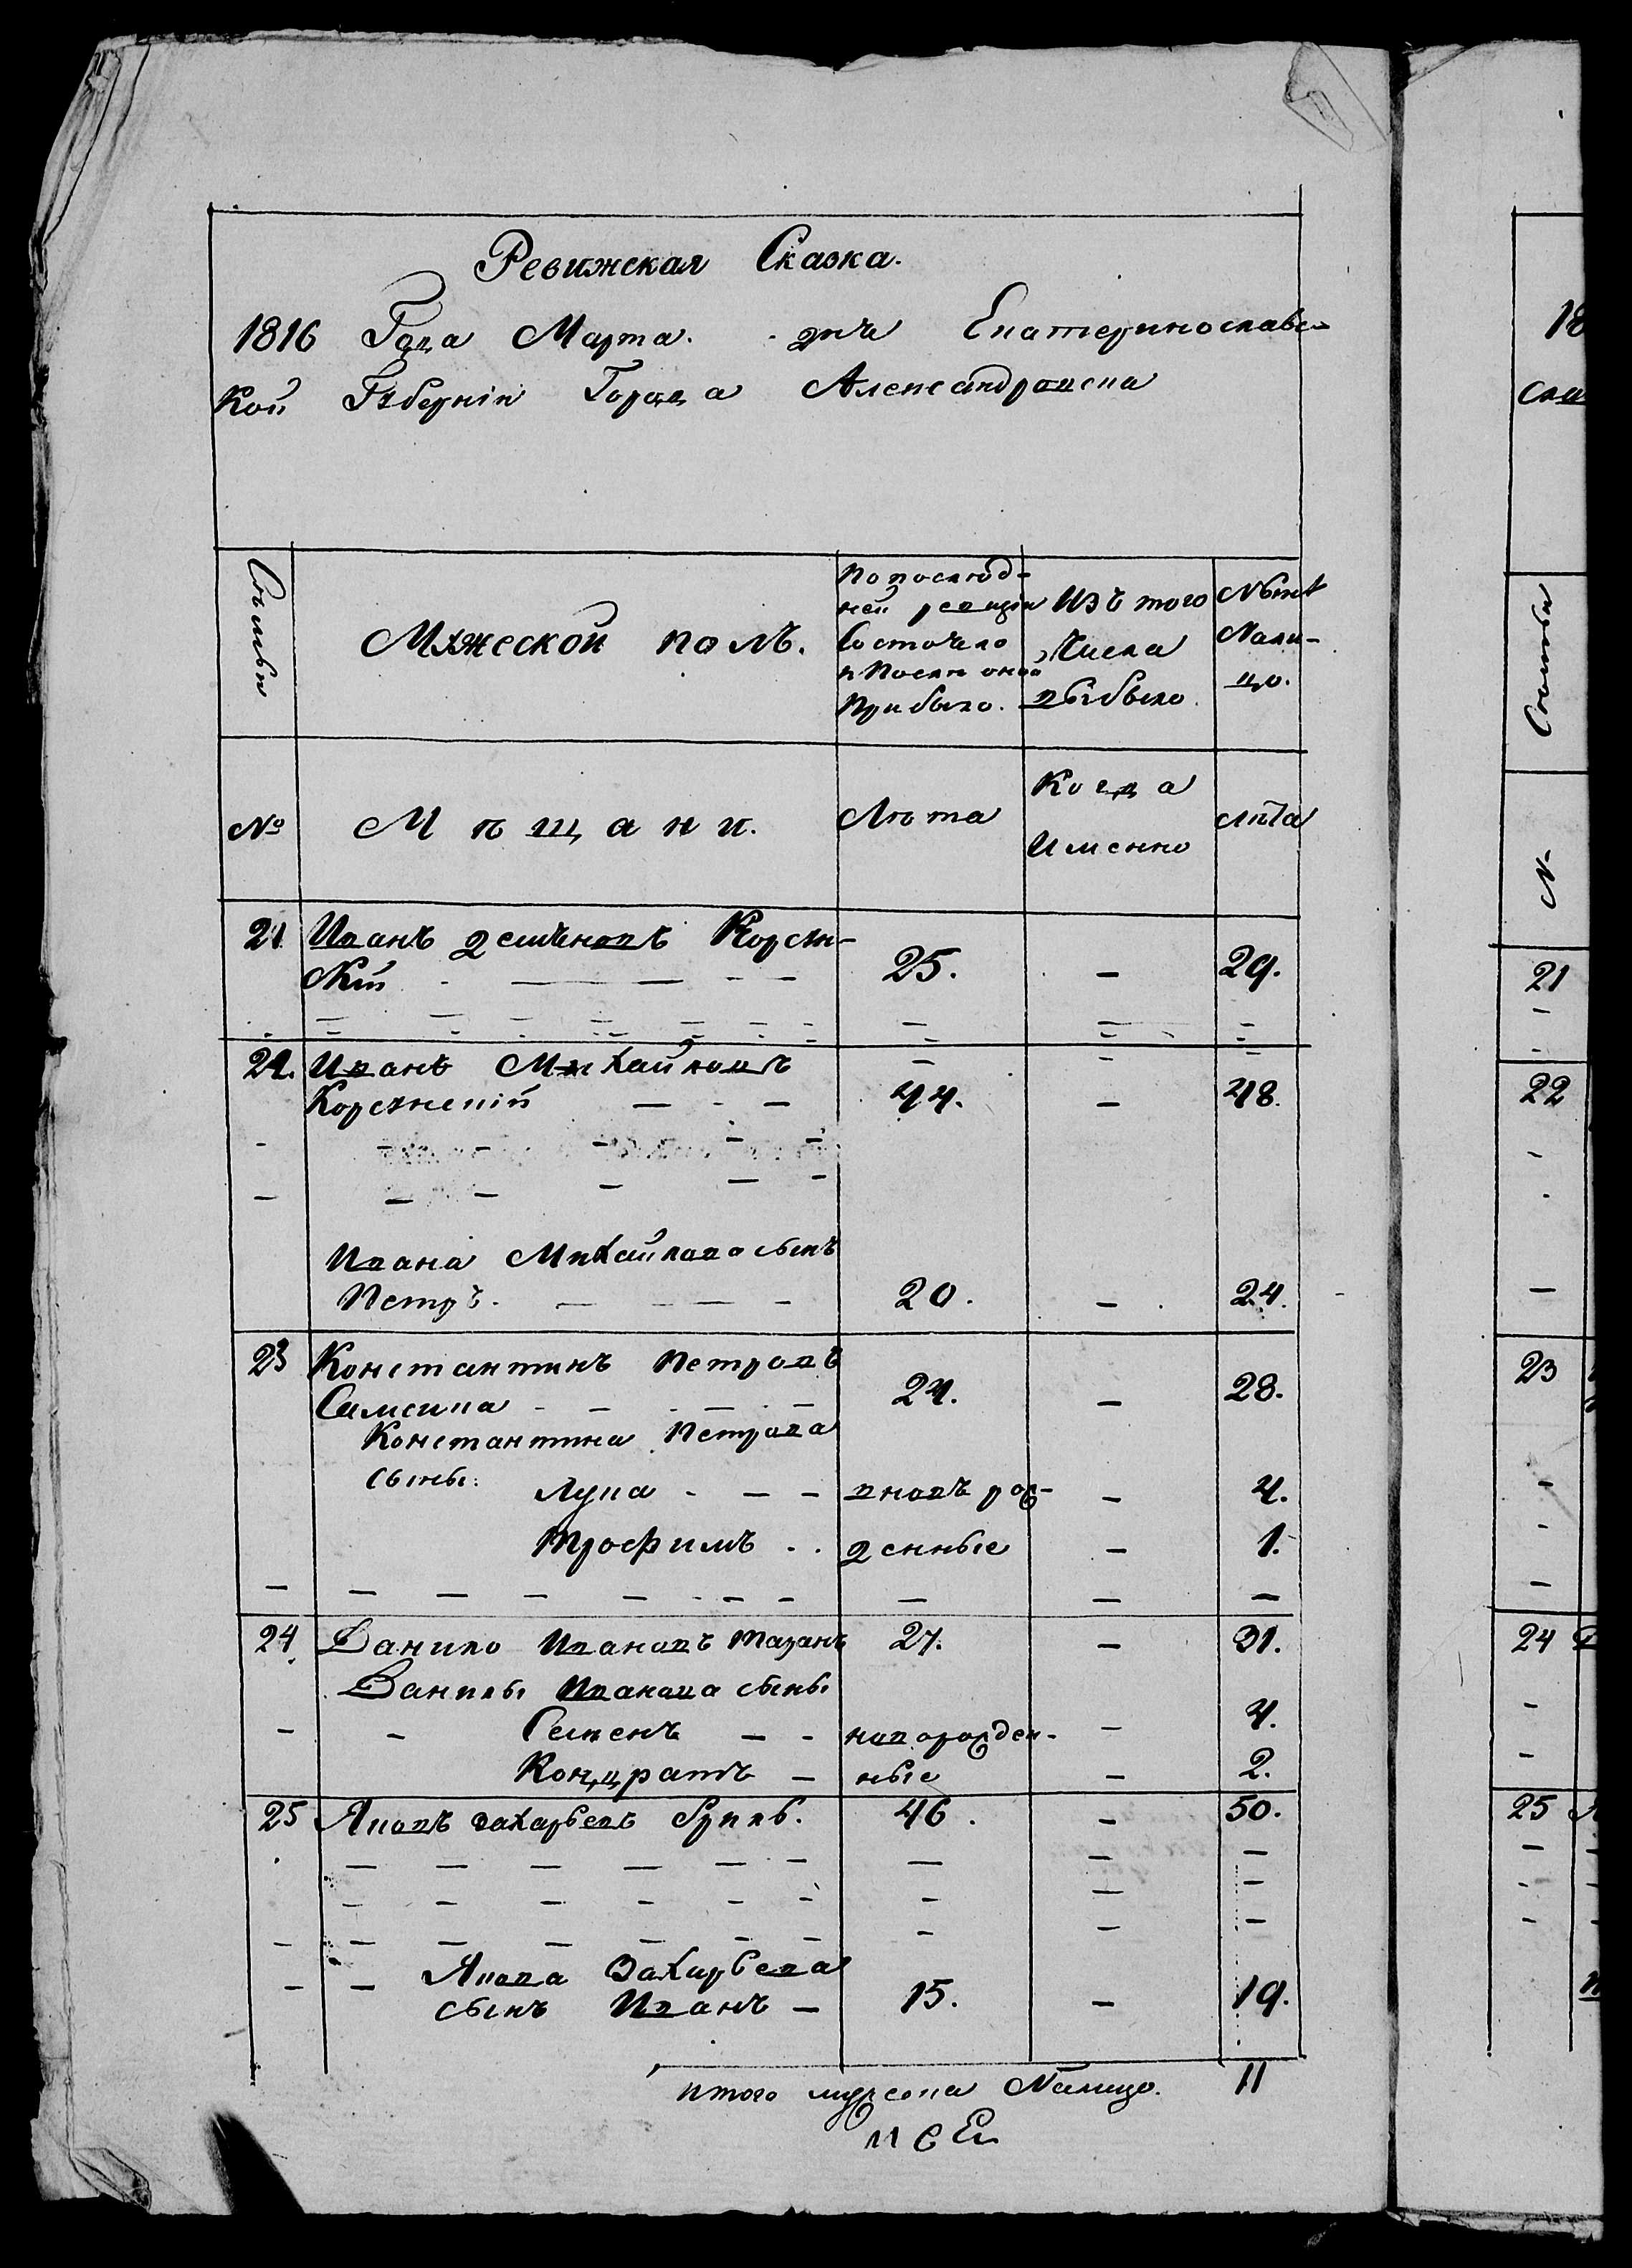 Ревижская Сказка.
1816 Года Марта. дня Екатеринославс-
кой Губерніи Города Александровска
Семьи
Мужеской полъ.
По послед-
ней ревизіи
Состояло
и После оной
прибыло.
Изъ того
Числа
выбыло.
Ныне
Нали-
цо.
№
Мещани.
Лета
Когда
Именно
лета
21 Иванъ Семеновъ
25. - 29.
22. Иванъ Михайловъ
Корсунскій - - - 44. - 48.
Ивана Михайлова сынъ
Петръ. - - - 20. - 24.
23 Константинъ Петровъ
24. - 28.
Константина Петрова
сыны: Лука - - - вновь рож- - 4.
Трофимъ . . денные - 1.
24 Данило Ивановъ Таранъ 27. - 31.
Данилы Иванова сыны
- - Семенъ - - новорожден- - 4.
Кондратъ - ные - 2.
25 Яковъ Захарьевъ 46. - 50.
- - Якова Захарьева
сынъ Иванъ - 15. - 19.
итого мужеска Налицо. 11
18
21
22
23
24
25